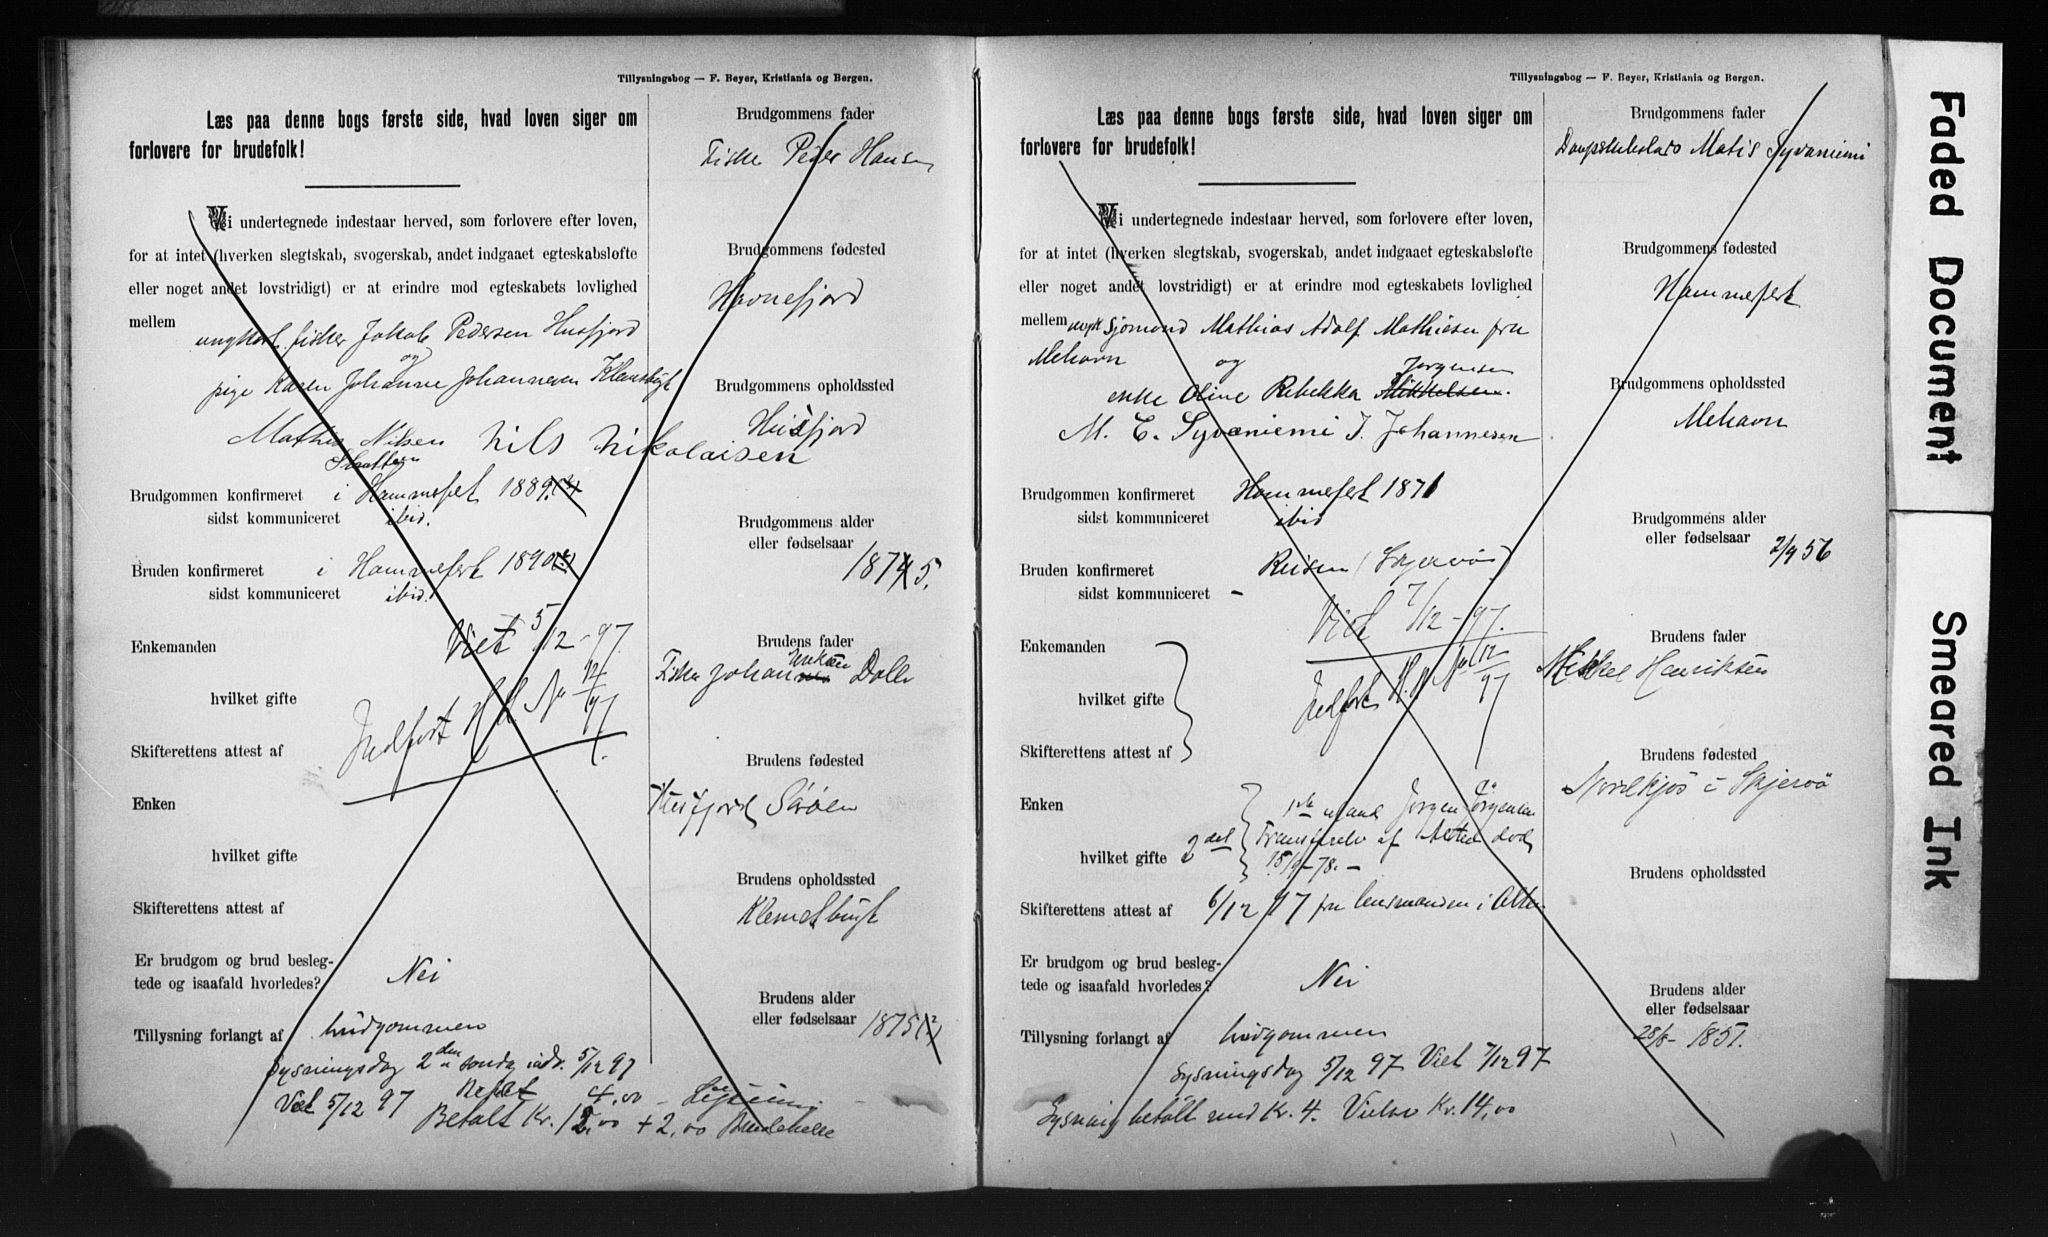 Tillysningsbog — F. Beyer, Kristiania og Bergen.
Læs paa denne bogs første side, hvad loven siger om
forlovere for brudefolk!
Vi undertegnede indestaar herved, som forlovere efter loven,
for at intet (hverken slegtskab, svogerskab, andet indgaaet egteskabsløfte
eller noget andet lovstridigt) er at erindre mod egteskabets lovlighed
mellem
ungkarl fisker Jakob Pedersen Husfjord
og
pige Karen Johanne Johannesen Klemetbugt
Mathis Nilsen Nils Nikolaisen
Brudgommen konfirmeret i Hammefest 1889
sidst kommuniceret ibid.
Bruden konfirmeret i Hammefest 1890
sidst kommuniceret ibid.
Enkemanden
Viet 5/12-97
hvilket gifte
Indført No 12/97
Skifterettens attest af
Enken
hvilket gifte
Skifterettens attest af
Er brudgom og brud besleg-
tede og isaafald hvorledes? Nei
Tillysning forlangt af brudgommen
Lysningsdag 2den sondag i adv. 5/12 97
Viet 5/12 97 4,00
Betalt Kr. 12,00 + 2,00
Brudgommens fader
Fisker Peder Hansen
Brudgommens fødested
Havnefjord
Brudgommens opholdssted
Husfjord
Brudgommens alder
eller fødselsaar
1875.
Brudens fader
Fisker Johan Dall
Brudens fødested
Husfjord Sørøen
Brudens opholdssted
Klemetbugt
Brudens alder
eller fødselsaar 1875
Tillysningsbog — F. Beyer, Kristiania og Bergen.
Læs paa denne bogs første side, hvad loven siger om
forlovere for brudefolk!
Vi undertegnede indestaar herved, som forlovere efter loven,
for at intet (hverken slegtskab, svogerskab, andet indgaaet egteskabsløfte
eller noget andet lovstridigt) er at erindre mod egteskabets lovlighed
mellem ungk sjømand Mathias Adolf Mathiesen fra
Mehavn og Jørgensen
enke Oline Rebekka Mikkelsen.
M. E. Syvaniemi J. Johannesen
Brudgommen konfirmeret Hammefest 1871
sidst kommuniceret ibid
Bruden konfirmeret Reisen (Skjervø)
sidst kommuniceret -
Enkemanden
Viet 7/12-97.
hvilket gifte
Indført No 12/97
Skifterettens attest af
Enken 1ste mand Jørgen Jørgensen
hvilket gifte 2det af død
15/9-78. -
Skifterettens attest af 6/12 97 fra lensmanden i Alten
Er brudgom og brud besleg-
tede og isaafald hvorledes? Nei
Tillysning forlangt af brudgommen
Lysningsdag 5/12 97 Viet 7/12 97
Lysning betalt med Kr. 4. Vielse Kr. 14,00
Brudgommens fader
Matis Syvaniemi
Brudgommens fødested
Hammefest
Brudgommens opholdssted
Mehavn
Brudgommens alder
eller fødselsaar 2/9 56
Brudens fader
Mikkel Henriksen
Brudens fødested
Nordkjos i Skjervø
Brudens opholdssted
Brudens alder
eller fødselsaar
28/8- 1851.
Faded Document
Smeared Ink